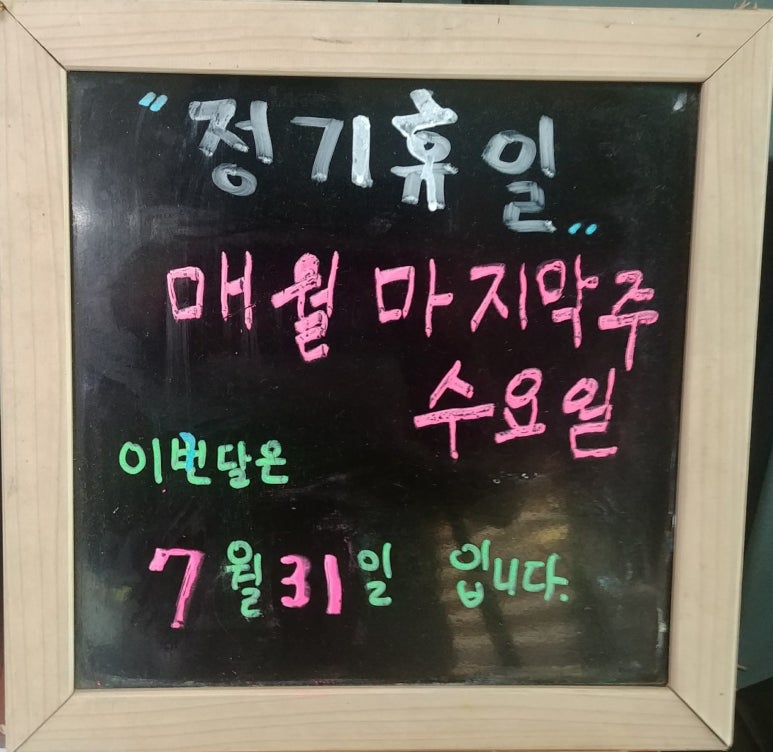 "정기휴일"
매월 마지막주
수요일
이번달은
7월31일 입니다.